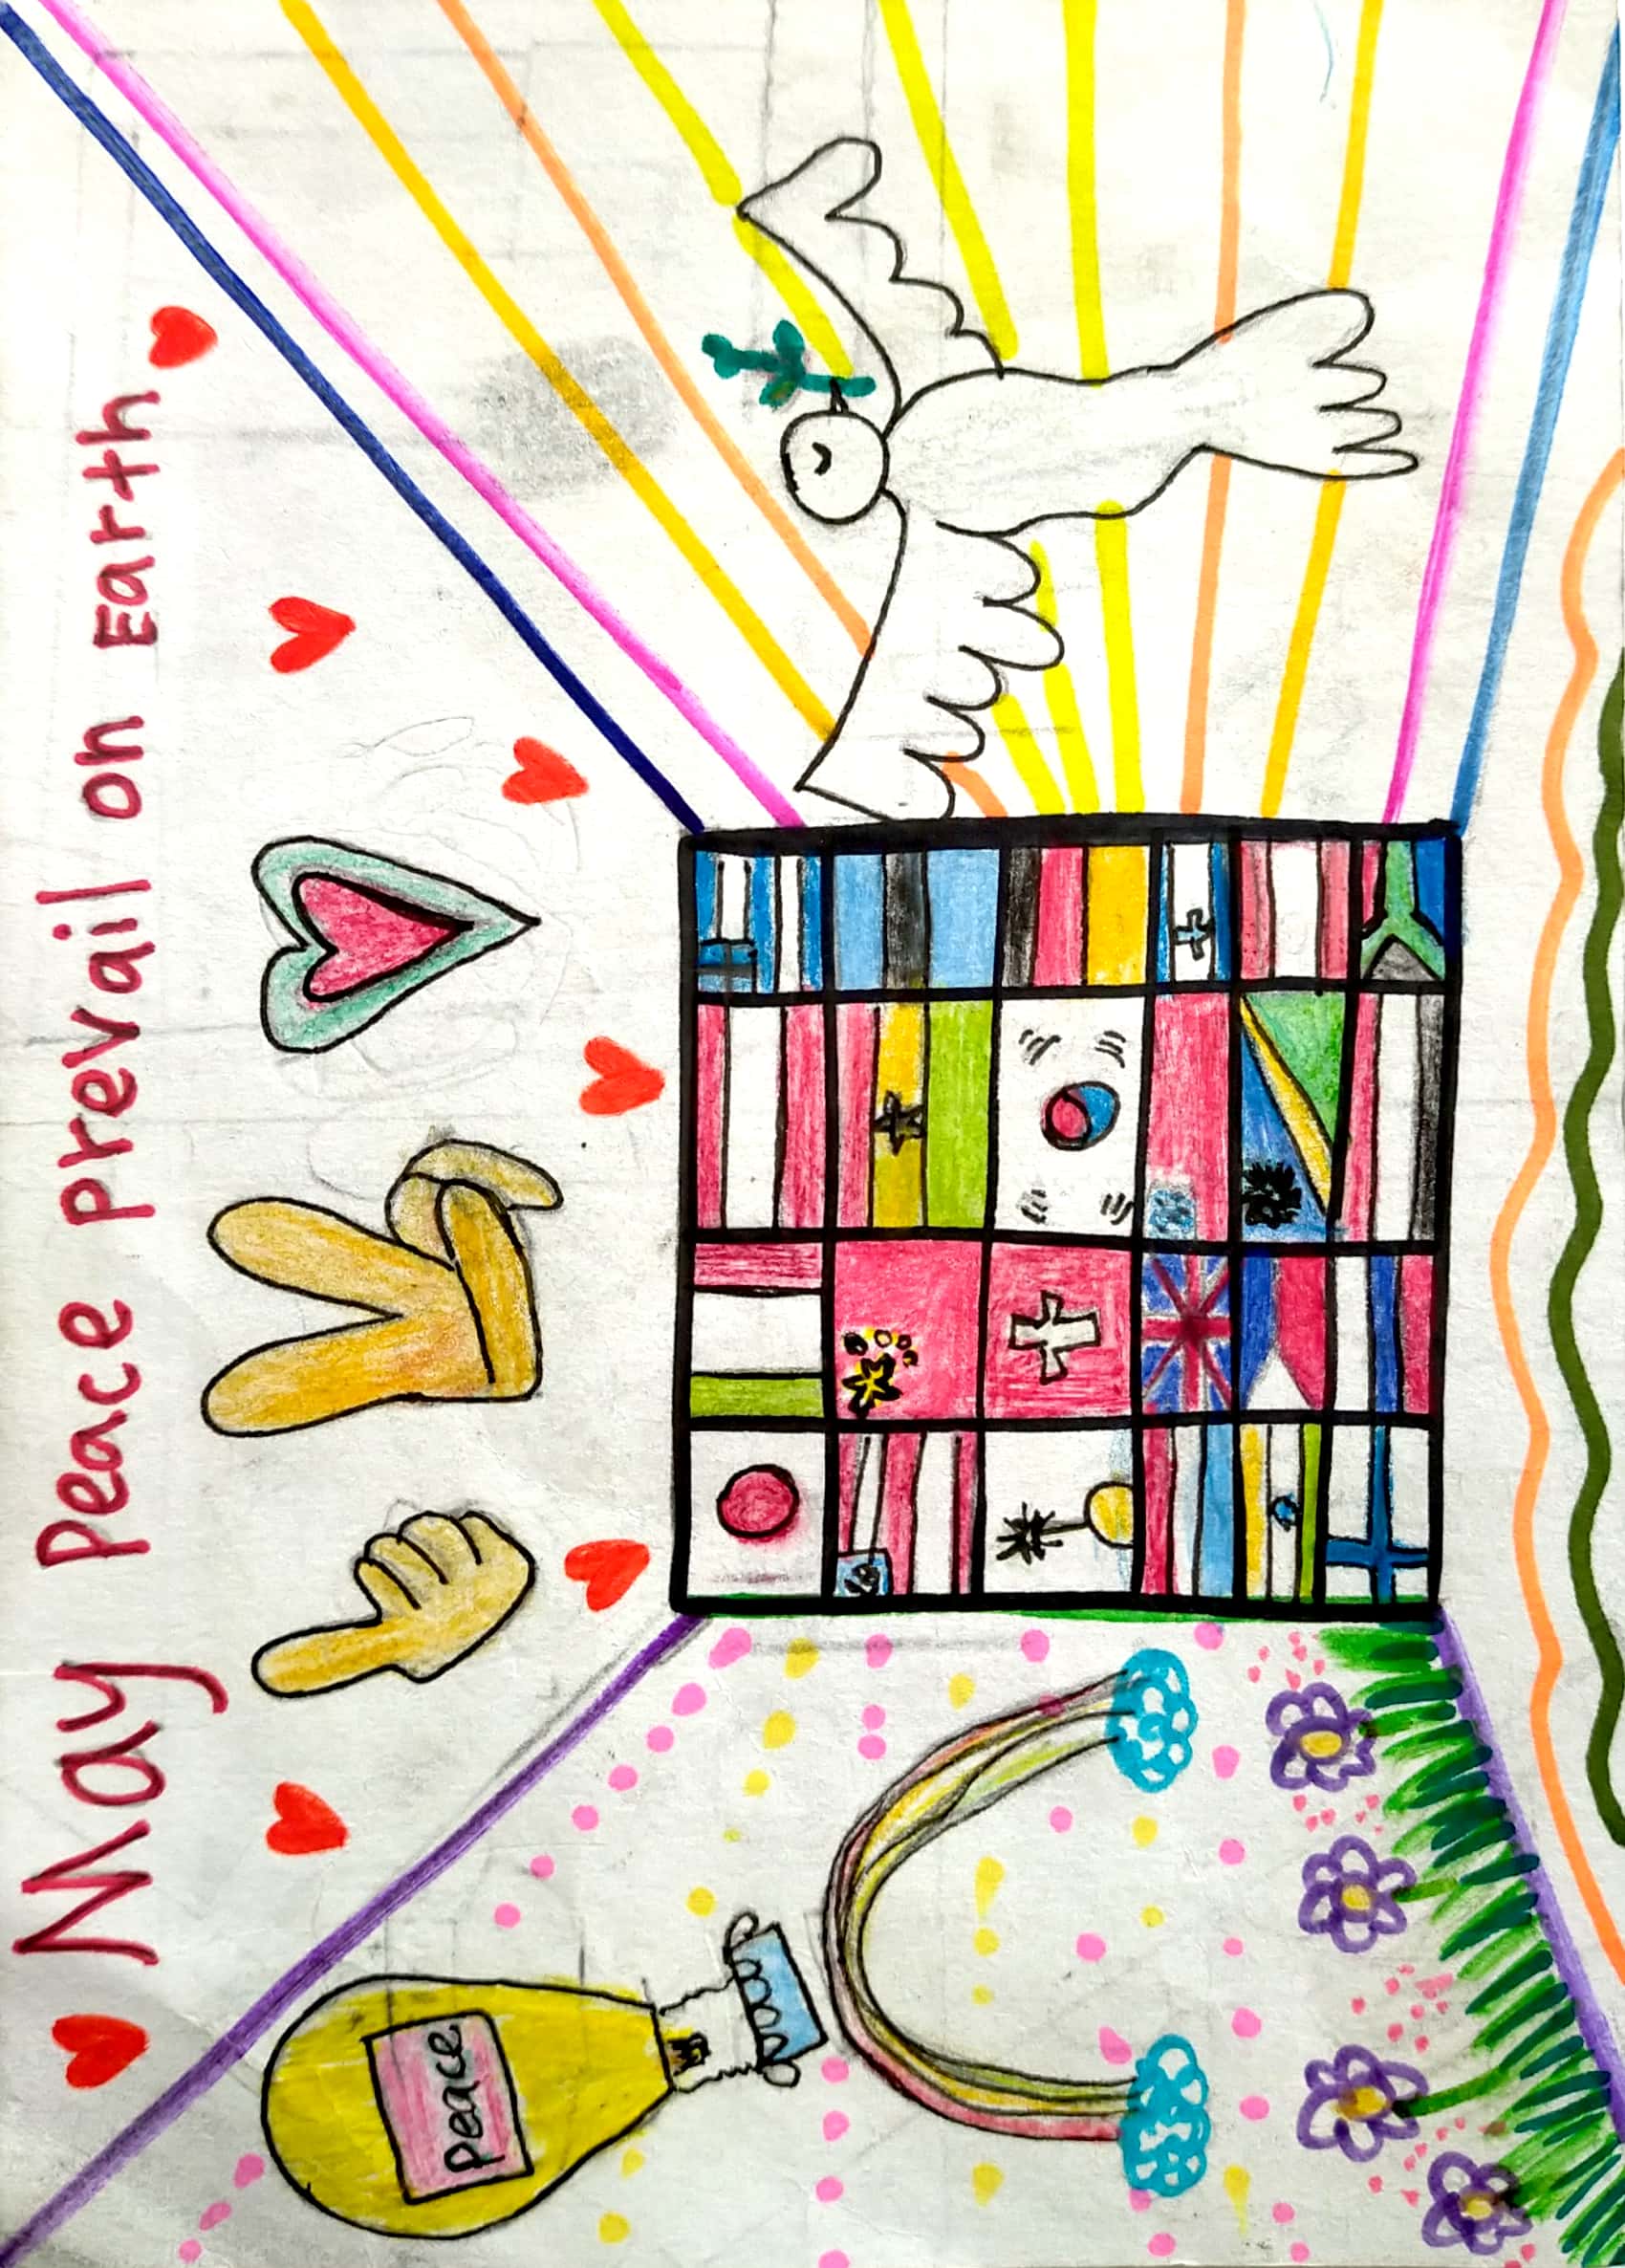 May peace prevail on Earth
peace